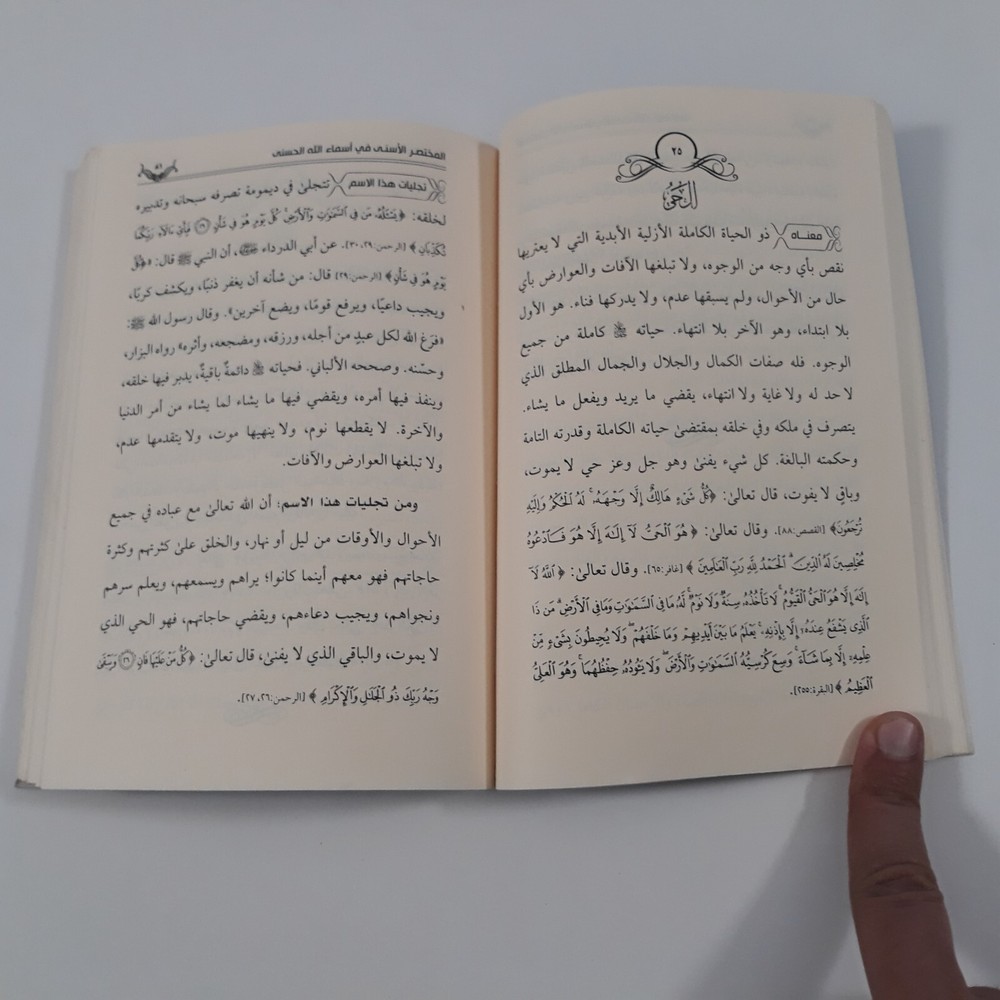 ٢٥
الحي
معناه ذو الحياة الكاملة الأزلية الأبدية التي لا يعتريها
نقص بأي وجه من الوجوه، ولا تبلغها الآفات والعوارض بأي
حال من الأحوال، ولم يسبقها عدم، ولا يدركها فناء. هو الأول
بلا ابتداء، وهو الآخر بلا انتهاء. حياته ﷻ كاملة من جميع
الوجوه. فله صفات الكمال والجلال والجمال المطلق الذي
لا حد له ولا غاية ولا انتهاء، يقضي ما يريد ويفعل ما يشاء.
يتصرف في ملكه وفي خلقه بمقتضىٰ حياته الكاملة وقدرته التامة
وحكمته البالغة. كل شيء يفنىٰ وهو جل وعز حي لا يموت،
وباقٍ لا يفوت، قال تعالىٰ: ﴿كُلُّ شَيْءٍ هَالِكٌ إِلَّا وَجْهَهُۥ لَهُ الْحُكْمُ وَإِلَيْهِ
تُرْجَعُونَ﴾ [القصص:٨٨]. وقال تعالىٰ: ﴿هُوَ الْحَيُّ لَآ إِلَٰهَ إِلَّا هُوَ فَادْعُوهُ
مُخْلِصِينَ لَهُ الدِّينَ ۗ الْحَمْدُ لِلَّهِ رَبِّ الْعَالَمِينَ﴾ [غافر:٦٥]. وقال تعالىٰ: ﴿اللَّهُ لَآ
إِلَٰهَ إِلَّا هُوَ الْحَيُّ الْقَيُّومُ ۚ لَا تَأْخُذُهُۥ سِنَةٌ وَلَا نَوْمٌ ۚ لَّهُۥ مَا فِي السَّمَٰوَٰتِ وَمَا فِي الْأَرْضِ ۗ مَن ذَا
الَّذِي يَشْفَعُ عِندَهُۥٓ إِلَّا بِإِذْنِهِۦ ۚ يَعْلَمُ مَا بَيْنَ أَيْدِيهِمْ وَمَا خَلْفَهُمْ ۖ وَلَا يُحِيطُونَ بِشَيْءٍ مِّنْ
عِلْمِهِۦٓ إِلَّا بِمَا شَآءَ ۚ وَسِعَ كُرْسِيُّهُ السَّمَٰوَٰتِ وَالْأَرْضَ ۖ وَلَا يَـُٔودُهُۥ حِفْظُهُمَا ۚ وَهُوَ الْعَلِيُّ
الْعَظِيمُ﴾ [البقرة:٢٥٥].
المختصر الأسنى في أسماء الله الحسنى
تجليات هذا الاسم تتجلىٰ في ديمومة تصرفه سبحانه وتدبيره
لخلقه: ﴿يَسْـَٔلُهُۥ مَن فِي السَّمَٰوَٰتِ وَالْأَرْضِ ۚ كُلَّ يَوْمٍ هُوَ فِي شَأْنٍ ۝٢٩ فَبِأَيِّ ءَالَآءِ رَبِّكُمَا
تُكَذِّبَانِ﴾ [الرحمن:٢٩، ٣٠]. عن أبي الدرداء ﵁، أن النبي ﷺ قال: «﴿كُلَّ
يَوْمٍ هُوَ فِي شَأْنٍ﴾ [الرحمن:٢٩] قال: من شأنه أن يغفر ذنبًا، ويكشف كربًا،
ويجيب داعيًا، ويرفع قومًا، ويضع آخرين». وقال رسول الله ﷺ:
«فرَغ الله لكل عبدٍ من أجله، ورزقه، ومضجعه، وأثره» رواه البزار،
وحسّنه. وصححه الألباني. فحياته ﷻ دائمةٌ باقيةٌ، يدبر فيها خلقه،
وينفذ فيها أمره، ويقضي فيها ما يشاء لما يشاء من أمر الدنيا
والآخرة. لا يقطعها نوم، ولا ينهيها موت، ولا يتقدمها عدم،
ولا تبلغها العوارض والآفات.
ومن تجليات هذا الاسم: أن الله تعالىٰ مع عباده في جميع
الأحوال والأوقات من ليل أو نهار، والخلق علىٰ كثرتهم وكثرة
حاجاتهم فهو معهم أينما كانوا؛ يراهم ويسمعهم، ويعلم سرهم
ونجواهم، ويجيب دعاءهم، ويقضي حاجاتهم، فهو الحي الذي
لا يموت، والباقي الذي لا يفنىٰ، قال تعالىٰ: ﴿كُلُّ مَنْ عَلَيْهَا فَانٍ ۝٢٦ وَيَبْقَىٰ
وَجْهُ رَبِّكَ ذُو الْجَلَٰلِ وَالْإِكْرَامِ﴾ [الرحمن:٢٦، ٢٧].